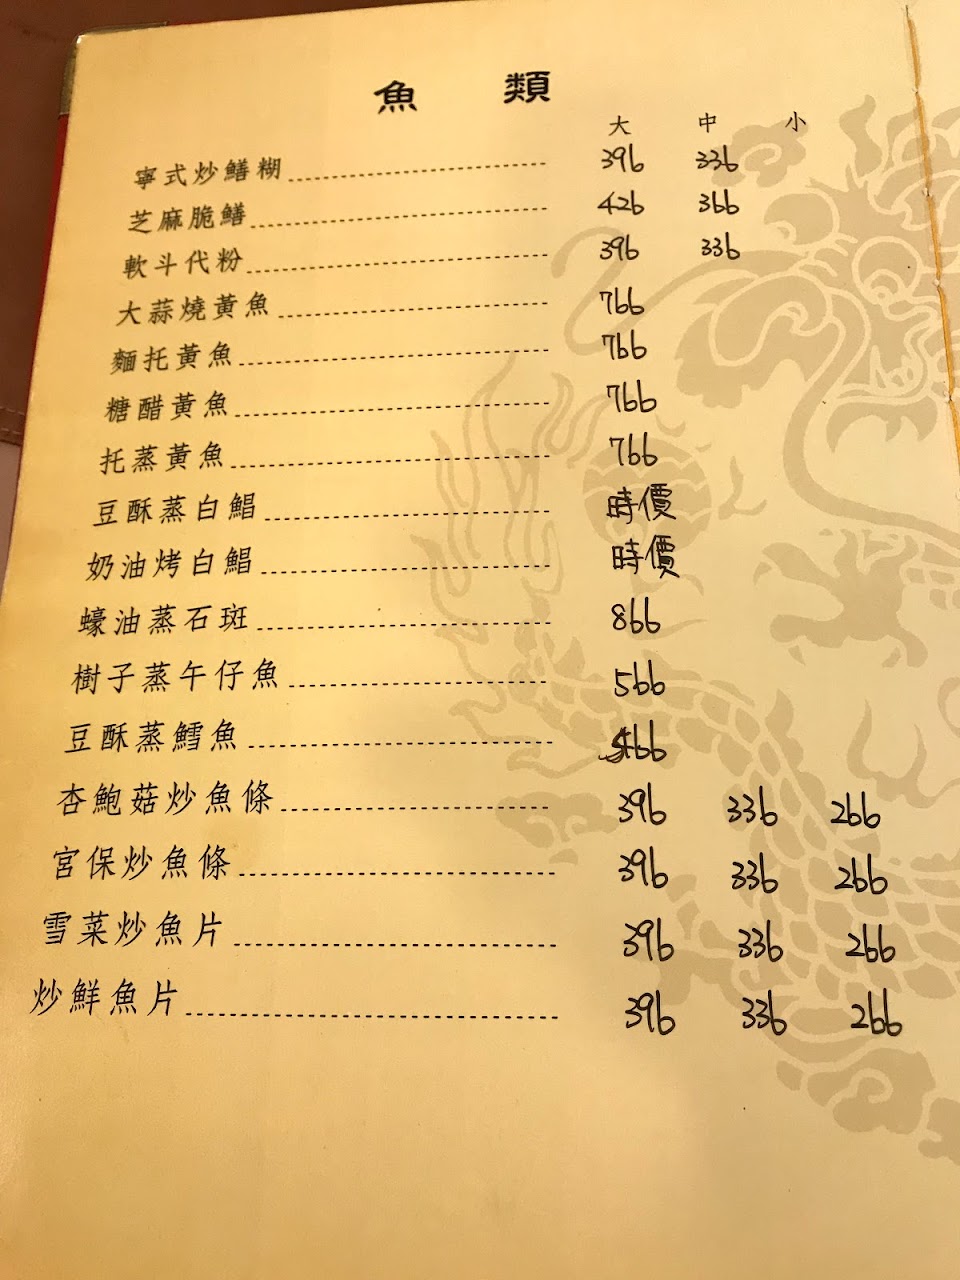 魚類
大 中 小
寧式炒鱔糊 396 336
芝麻脆鱔 426 366
軟斗代粉 396 336
大蒜燒黃魚 766
麵托黃魚 766
糖醋黃魚 766
托蒸黃魚 766
豆酥蒸白鯧 時價
奶油烤白鯧 時價
蠔油蒸石斑 866
樹子蒸午仔魚 566
豆酥蒸鱈魚
杏鮑菇炒魚條 396 336 266
宮保炒魚條 396 336 266
雪菜炒魚片 396 336 266
炒鮮魚片 396 336 266